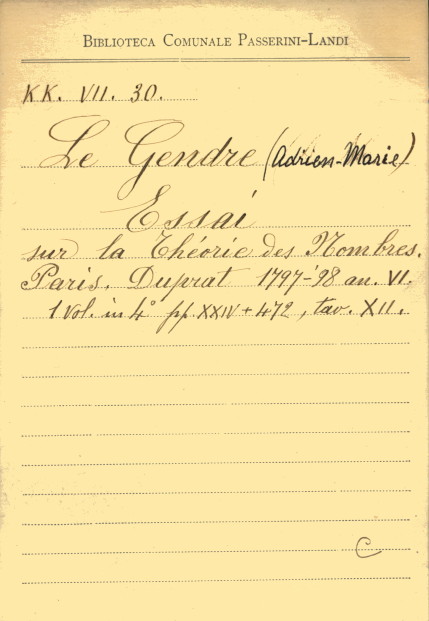 BIBLIOTECA COMUNALE PASSERINI-LANDI
KK. VII. 30.
Le Gendre (Adrien-Marie)
Essai
sur la Théorie des Nombres.
Paris. Duprat 1797-'98 an. VI.
1 Vol. in 4° pp. XXIV + 472, tav. XII.
C